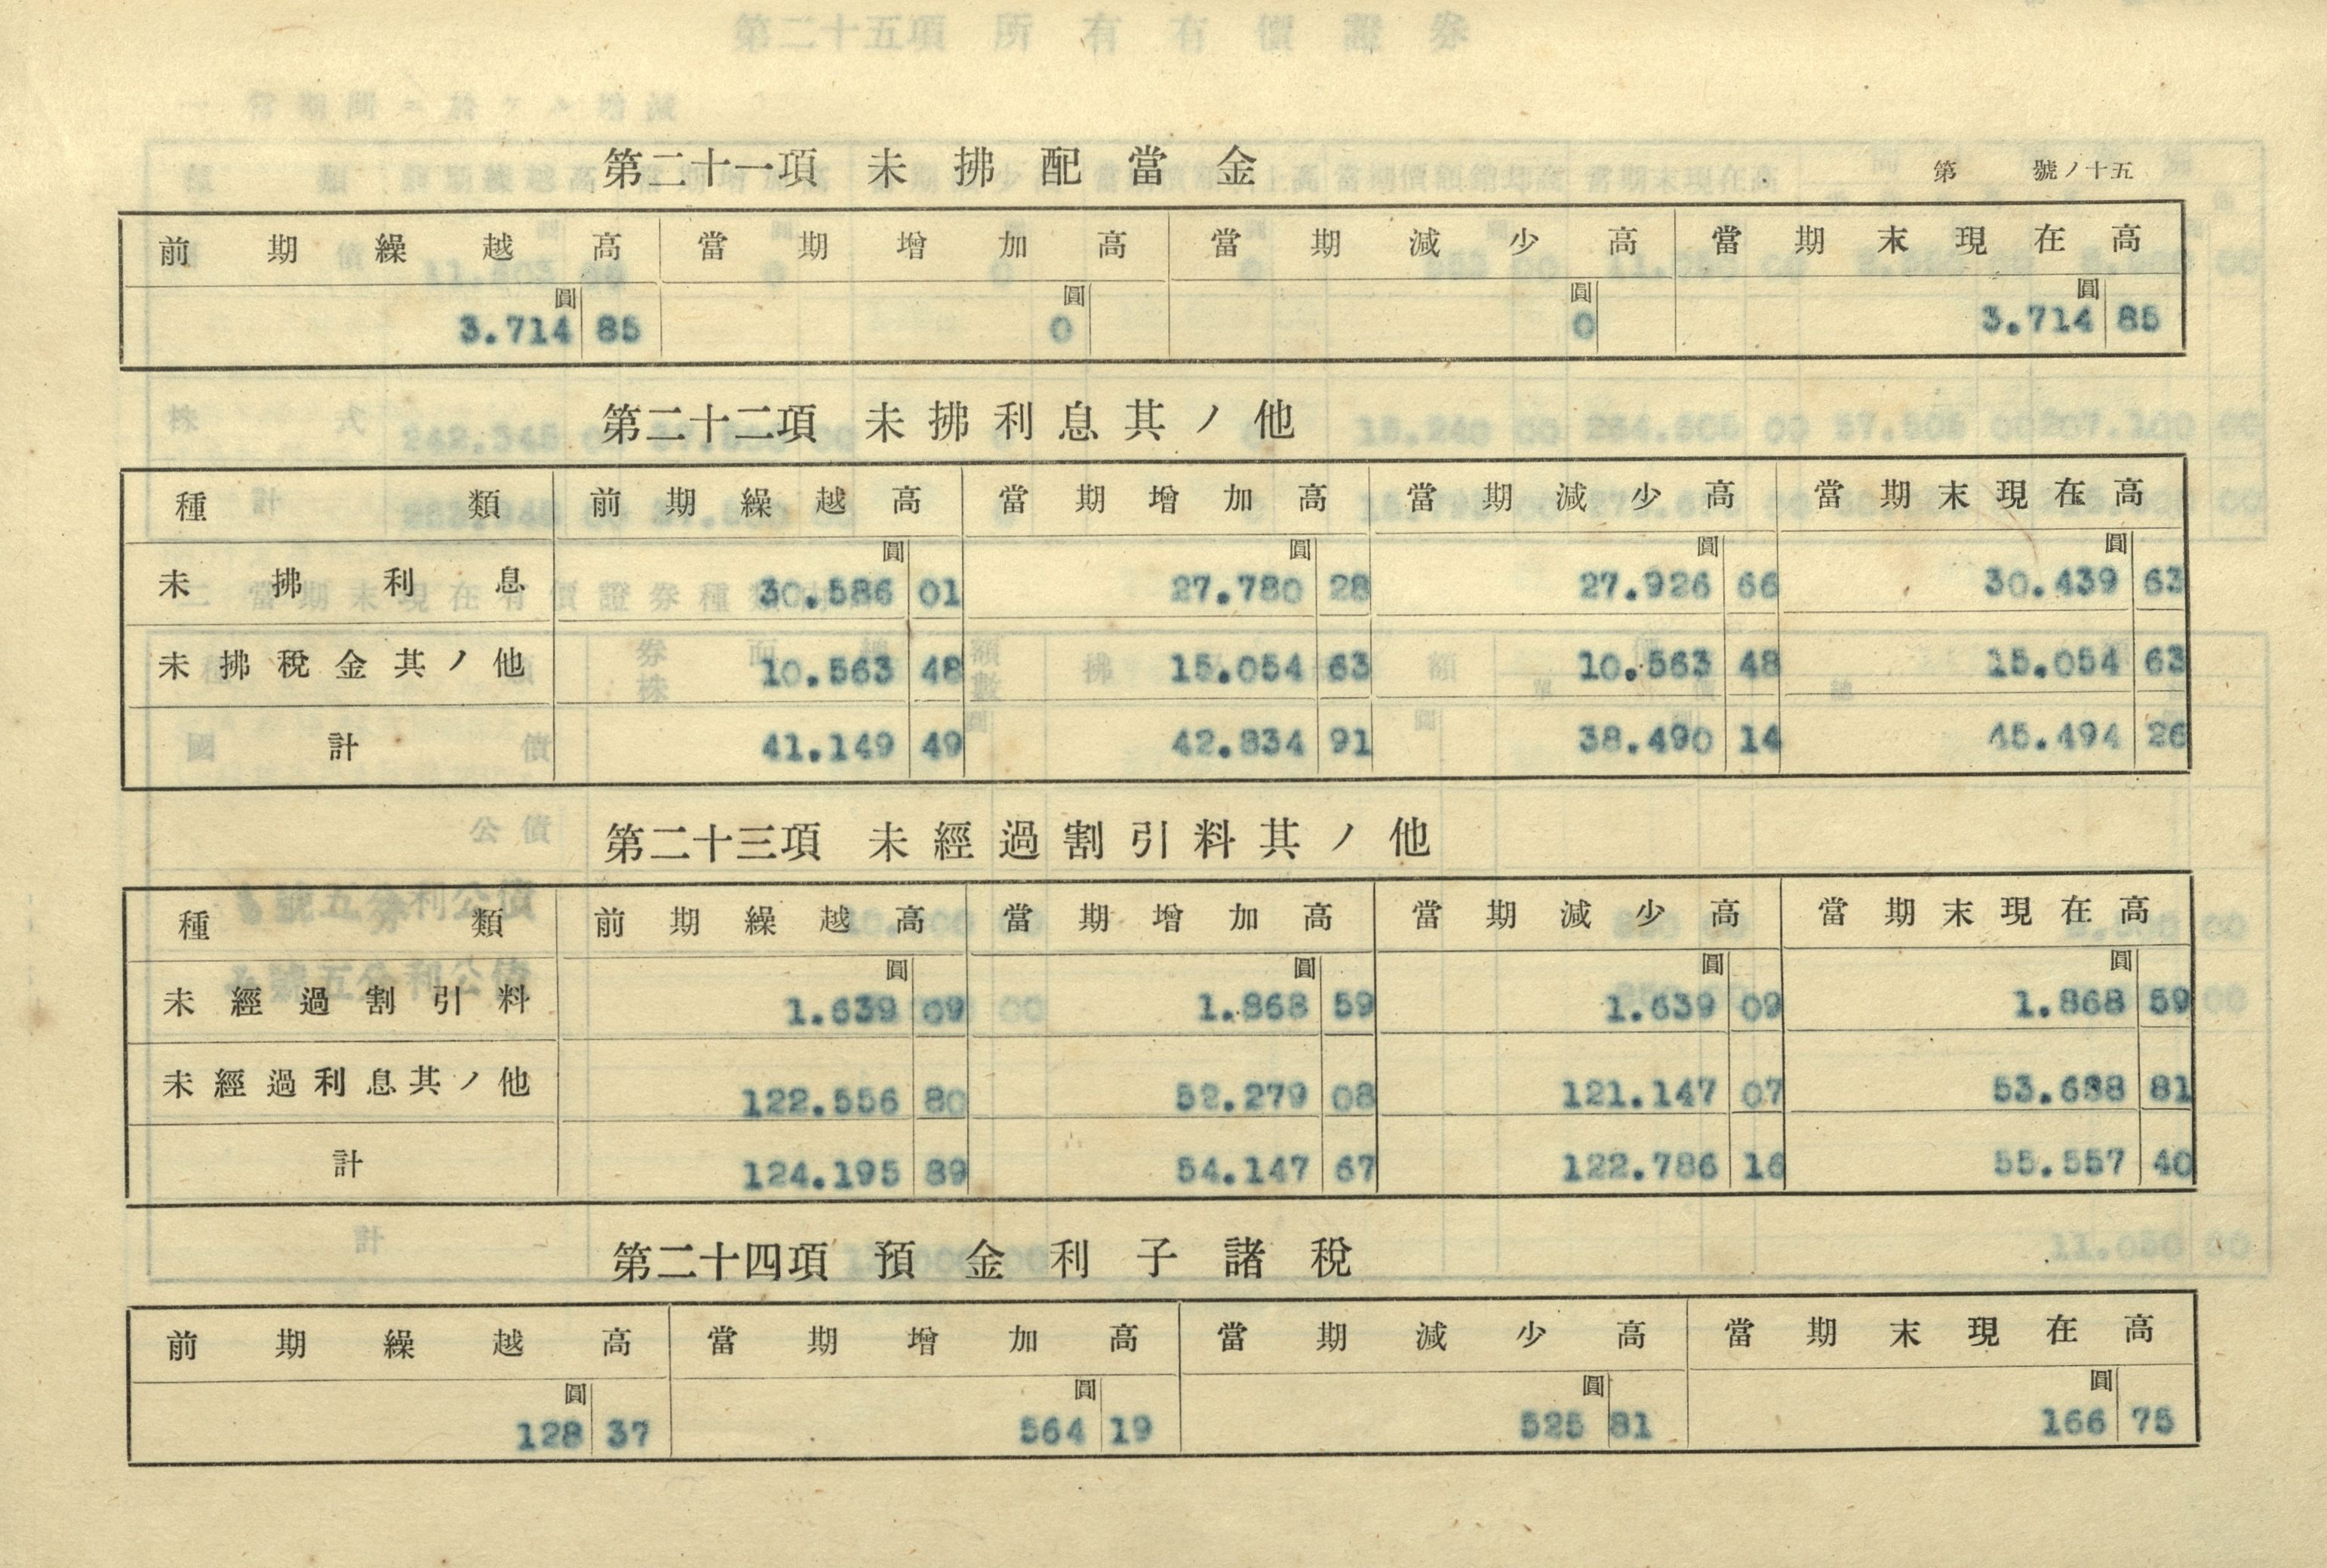 第二十一項 未拂配當金
第 號ノ十五
前期繰越高 當期增加高 當期減少高 當期末現在高
圓 圓 圓 圓
3.714 85 0 0 3.714 85
第二十二項 未拂利息其ノ他
種類 前期繰越高 當期增加高 當期減少高 當期末現在高
圓 圓 圓 圓
未拂利息 30.586 01 27.780 28 27.926 66 30.439 63
未拂稅金其ノ他 10.563 48 15.054 63 10.563 48 15.054 63
計 41.149 49 42.834 91 38.490 14 45.494 26
第二十三項 未經過割引料其ノ他
種類 前期繰越高 當期增加高 當期減少高 當期末現在高
圓 圓 圓 圓
未經過割引料 1.639 09 1.868 59 1.639 09 1.868 59
未經過利息其ノ他 122.556 80 52.279 08 121.147 07 53.688 81
計 124.195 89 54.147 67 122.786 16 55.557 40
第二十四項 預金利子諸稅
前期繰越高 當期增加高 當期減少高 當期末現在高
圓 圓 圓 圓
128 37 564 19 525 81 166 75